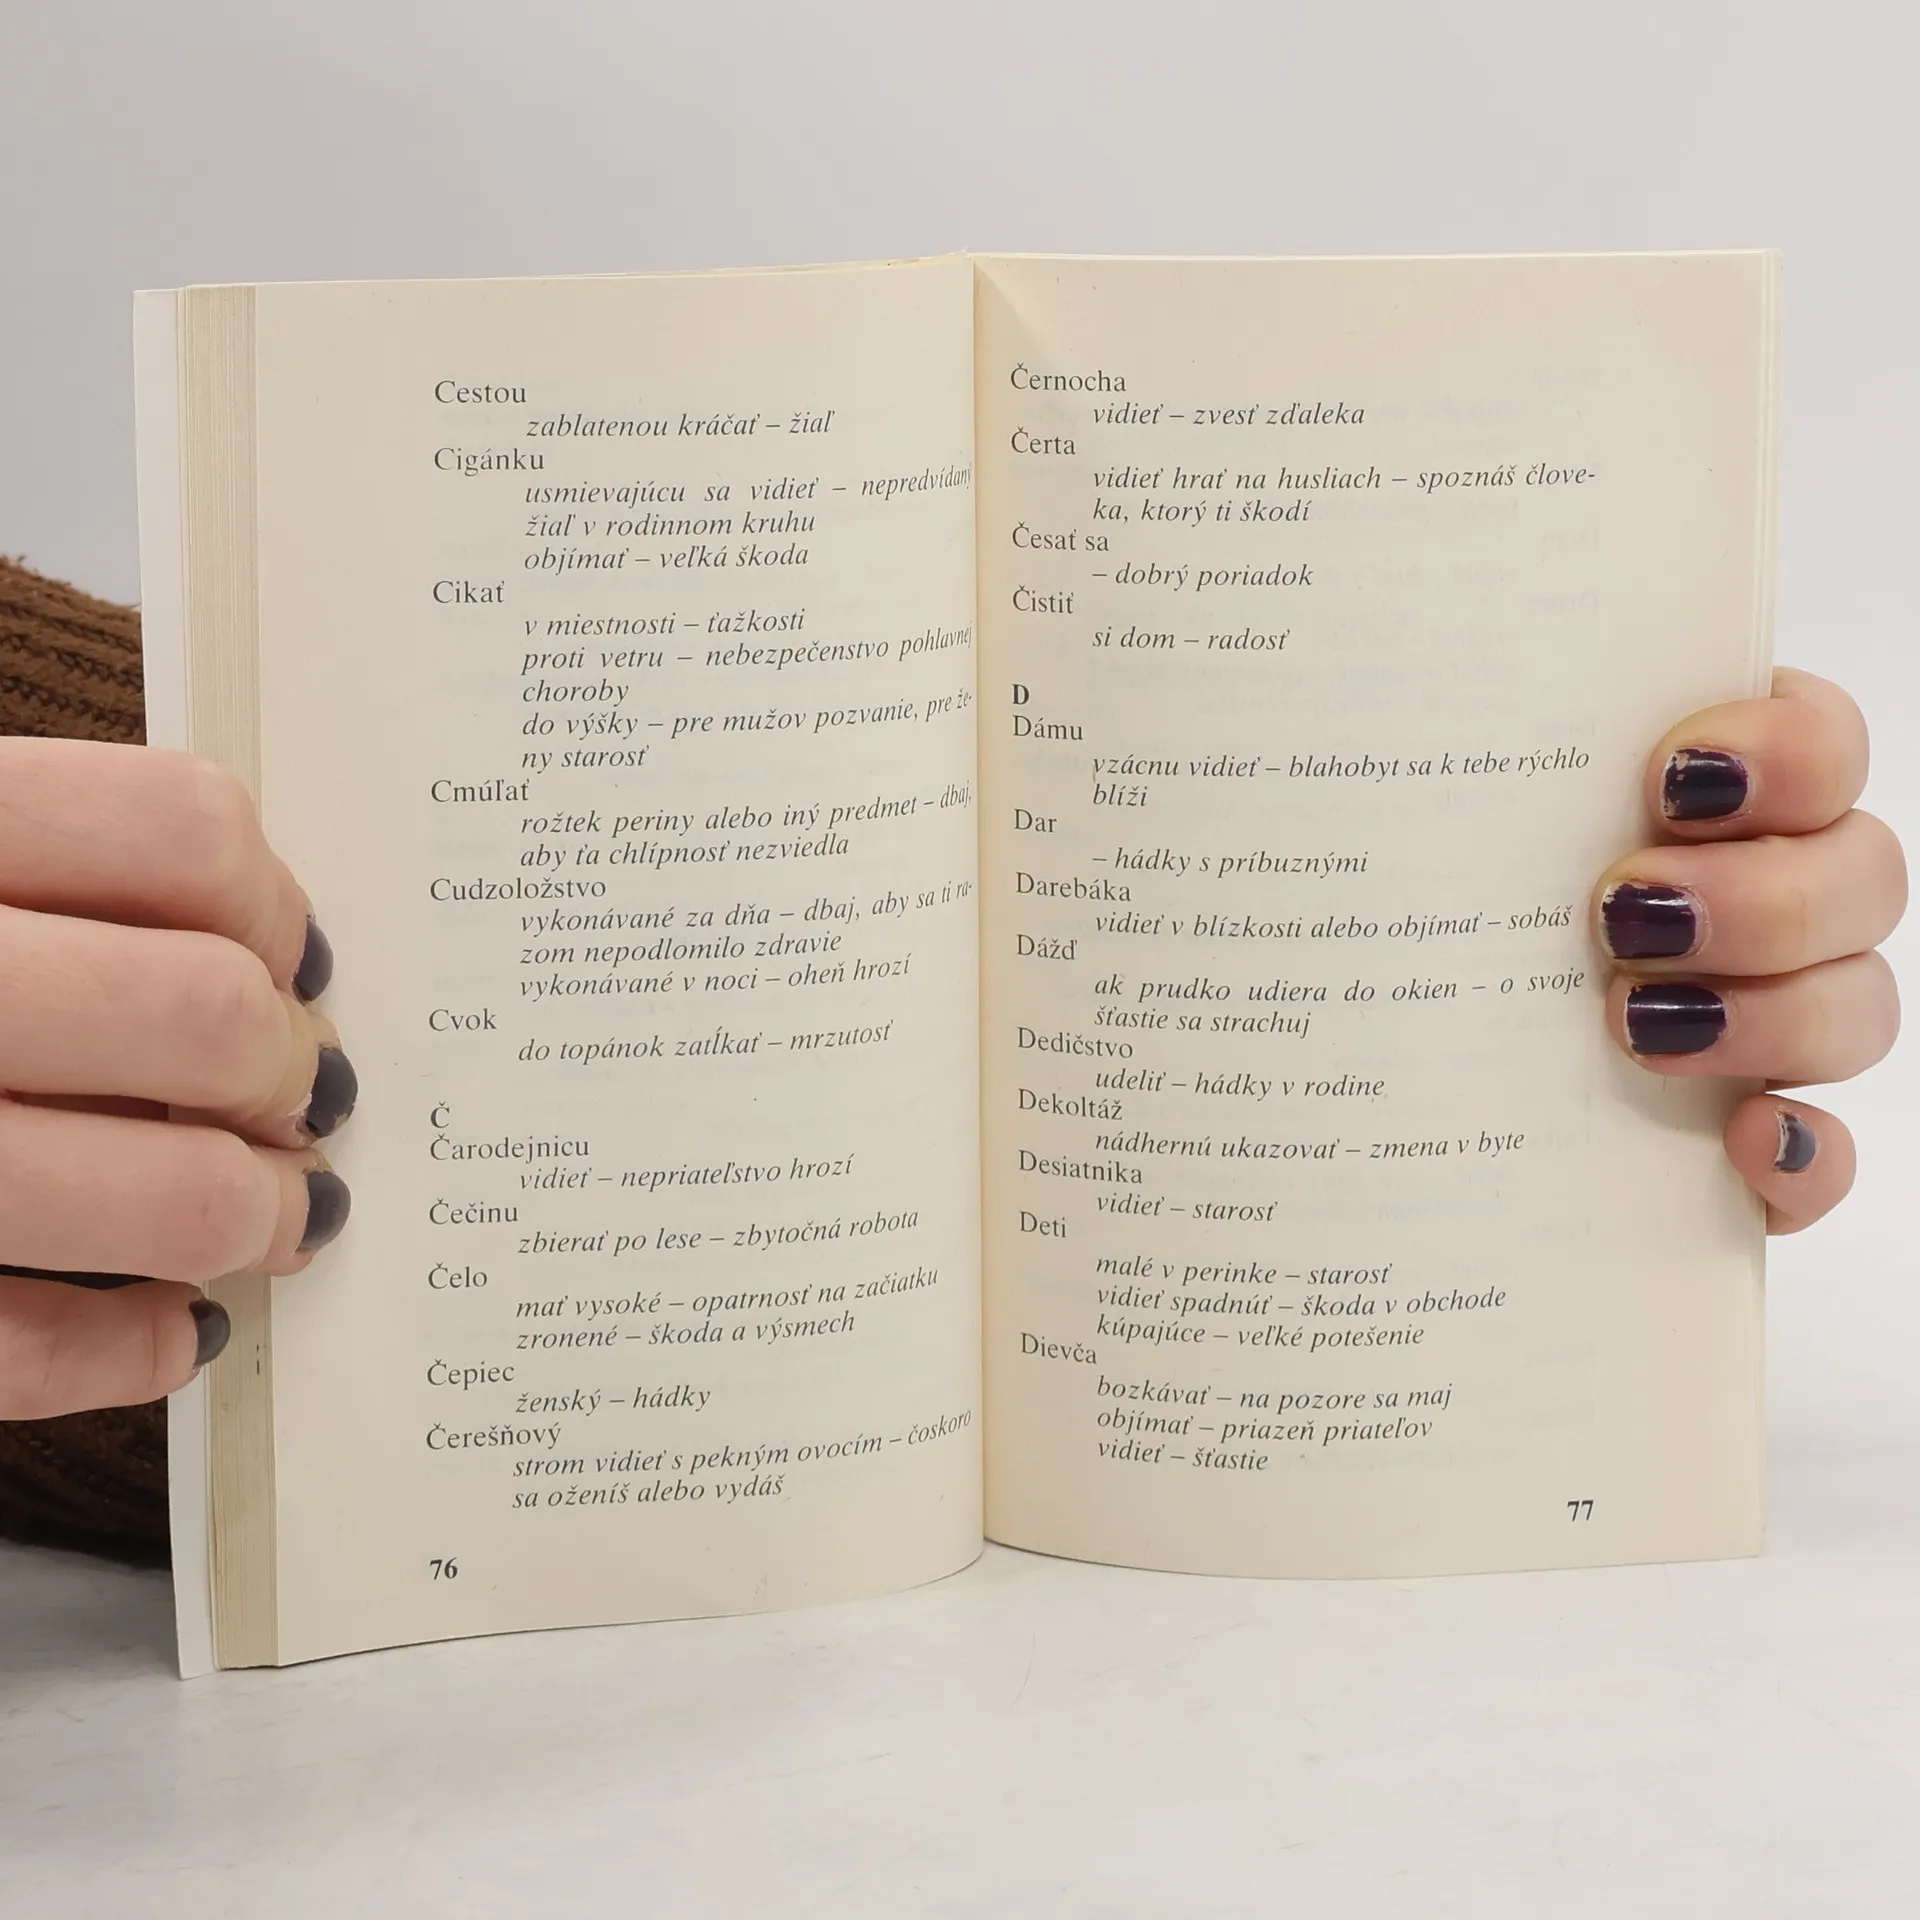 Cestou
zablatenou kráčať – žiaľ
Cigánku
usmievajúcu sa vidieť – nepredvídaný
žiaľ v rodinnom kruhu
objímať – veľká škoda
Cikať
v miestnosti – ťažkosti
proti vetru – nebezpečenstvo pohlavnej
choroby
do výšky – pre mužov pozvanie, pre že-
ny starosť
Cmúľať
rožtek periny alebo iný predmet – dbaj,
aby ťa chlípnosť nezviedla
Cudzoložstvo
vykonávané za dňa – dbaj, aby sa ti ra-
zom nepodlomilo zdravie
vykonávané v noci – oheň hrozí
Cvok
do topánok zatĺkať – mrzutosť
Č
Čarodejnicu
vidieť – nepriateľstvo hrozí
Čečinu
zbierať po lese – zbytočná robota
Čelo
mať vysoké – opatrnosť na začiatku
zronené – škoda a výsmech
Čepiec
ženský – hádky
Čerešňový
strom vidieť s pekným ovocím – čoskoro
sa oženíš alebo vydáš
76
Černocha
vidieť – zvesť zďaleka
Čerta
vidieť hrať na husliach – spoznáš člove-
ka, ktorý ti škodí
Česať sa
– dobrý poriadok
Čistiť
si dom – radosť
D
Dámu
vzácnu vidieť – blahobyt sa k tebe rýchlo
blíži
Dar
– hádky s príbuznými
Darebáka
vidieť v blízkosti alebo objímať – sobáš
Dážď
ak prudko udiera do okien – o svoje
šťastie sa strachuj
Dedičstvo
udeliť – hádky v rodine
Dekoltáž
nádhernú ukazovať – zmena v byte
Desiatnika
vidieť – starosť
Deti
malé v perinke – starosť
vidieť spadnúť – škoda v obchode
kúpajúce – veľké potešenie
Dievča
bozkávať – na pozore sa maj
objímať – priazeň priateľov
vidieť – šťastie
77